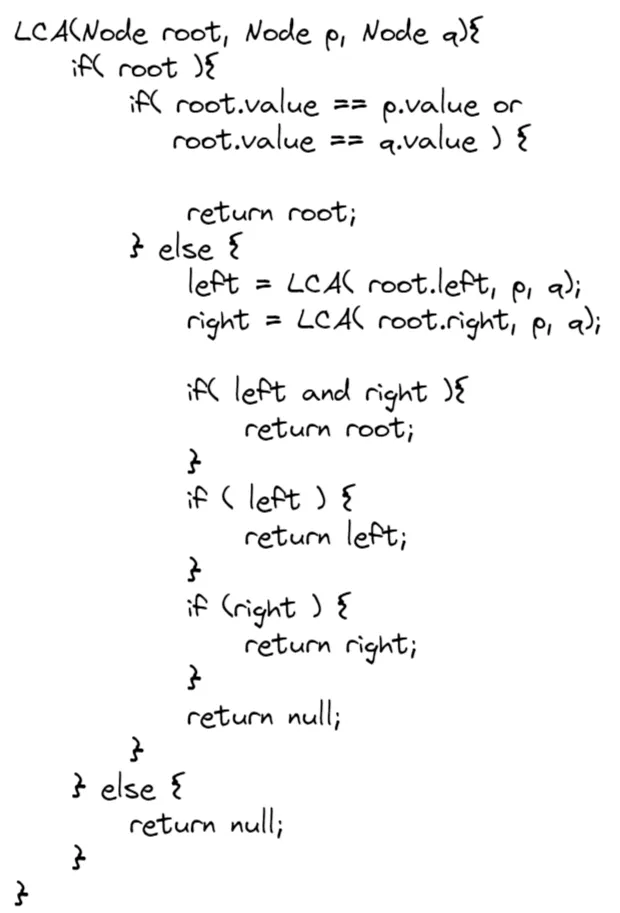 LCA(Node root, Node p, Node q){
if( root ){
if( root.value == p.value or
root.value == q.value ) {
return root;
} else {
left = LCA( root.left, p, q);
right = LCA( root.right, p, q);
if( left and right ){
return root;
}
if ( left ) {
return left;
}
if (right ) {
return right;
}
return null;
}
} else {
return null;
}
}